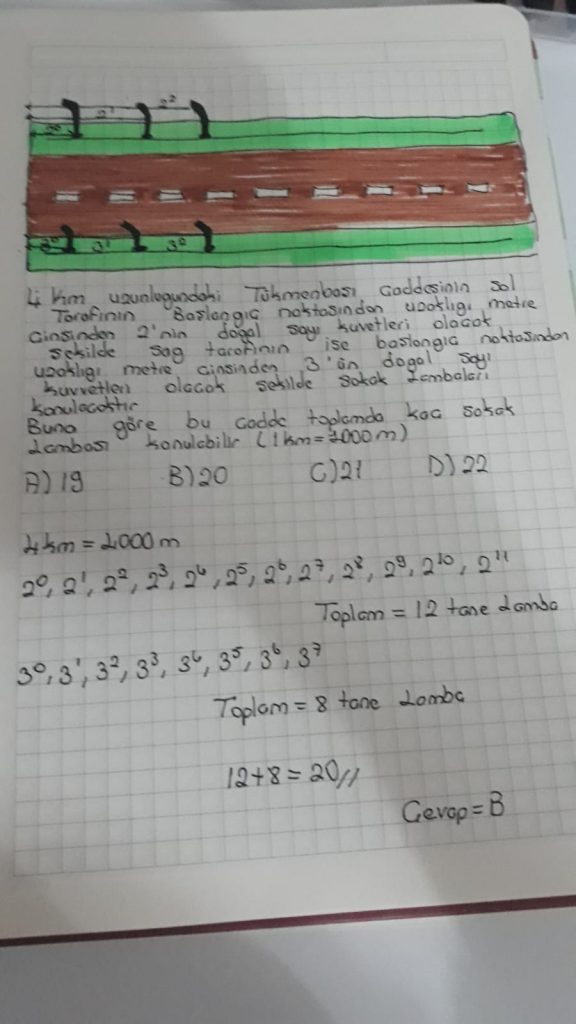 2¹ 2²
2⁰
3⁰ 3¹ 3⁰
4 km uzunlugundaki Tükmenbası caddesinin sol
Tarafının Baslangıc noktasından uzaklıgı metre
cinsinden 2'nin dogal sayı kuvetleri olacak
sekilde sag tarafının ise baslangıc noktasından
uzaklıgı metre cinsinden 3'ün dogal sayı
kuvvetleri olacak sekilde sokak Lambaları
konulacaktır
Buna göre bu cadde toplamda kac sokak
Lambası konulabilir (1 km = 1000 m)
A) 19 B) 20 C) 21 D) 22
4 km = 4000 m
2⁰, 2¹, 2², 2³, 2⁴, 2⁵, 2⁶, 2⁷, 2⁸, 2⁹, 2¹⁰, 2¹¹
Toplam = 12 tane Lamba
3⁰, 3¹, 3², 3³, 3⁴, 3⁵, 3⁶, 3⁷
Toplam = 8 tane Lamba
12+8 = 20//
Cevap = B